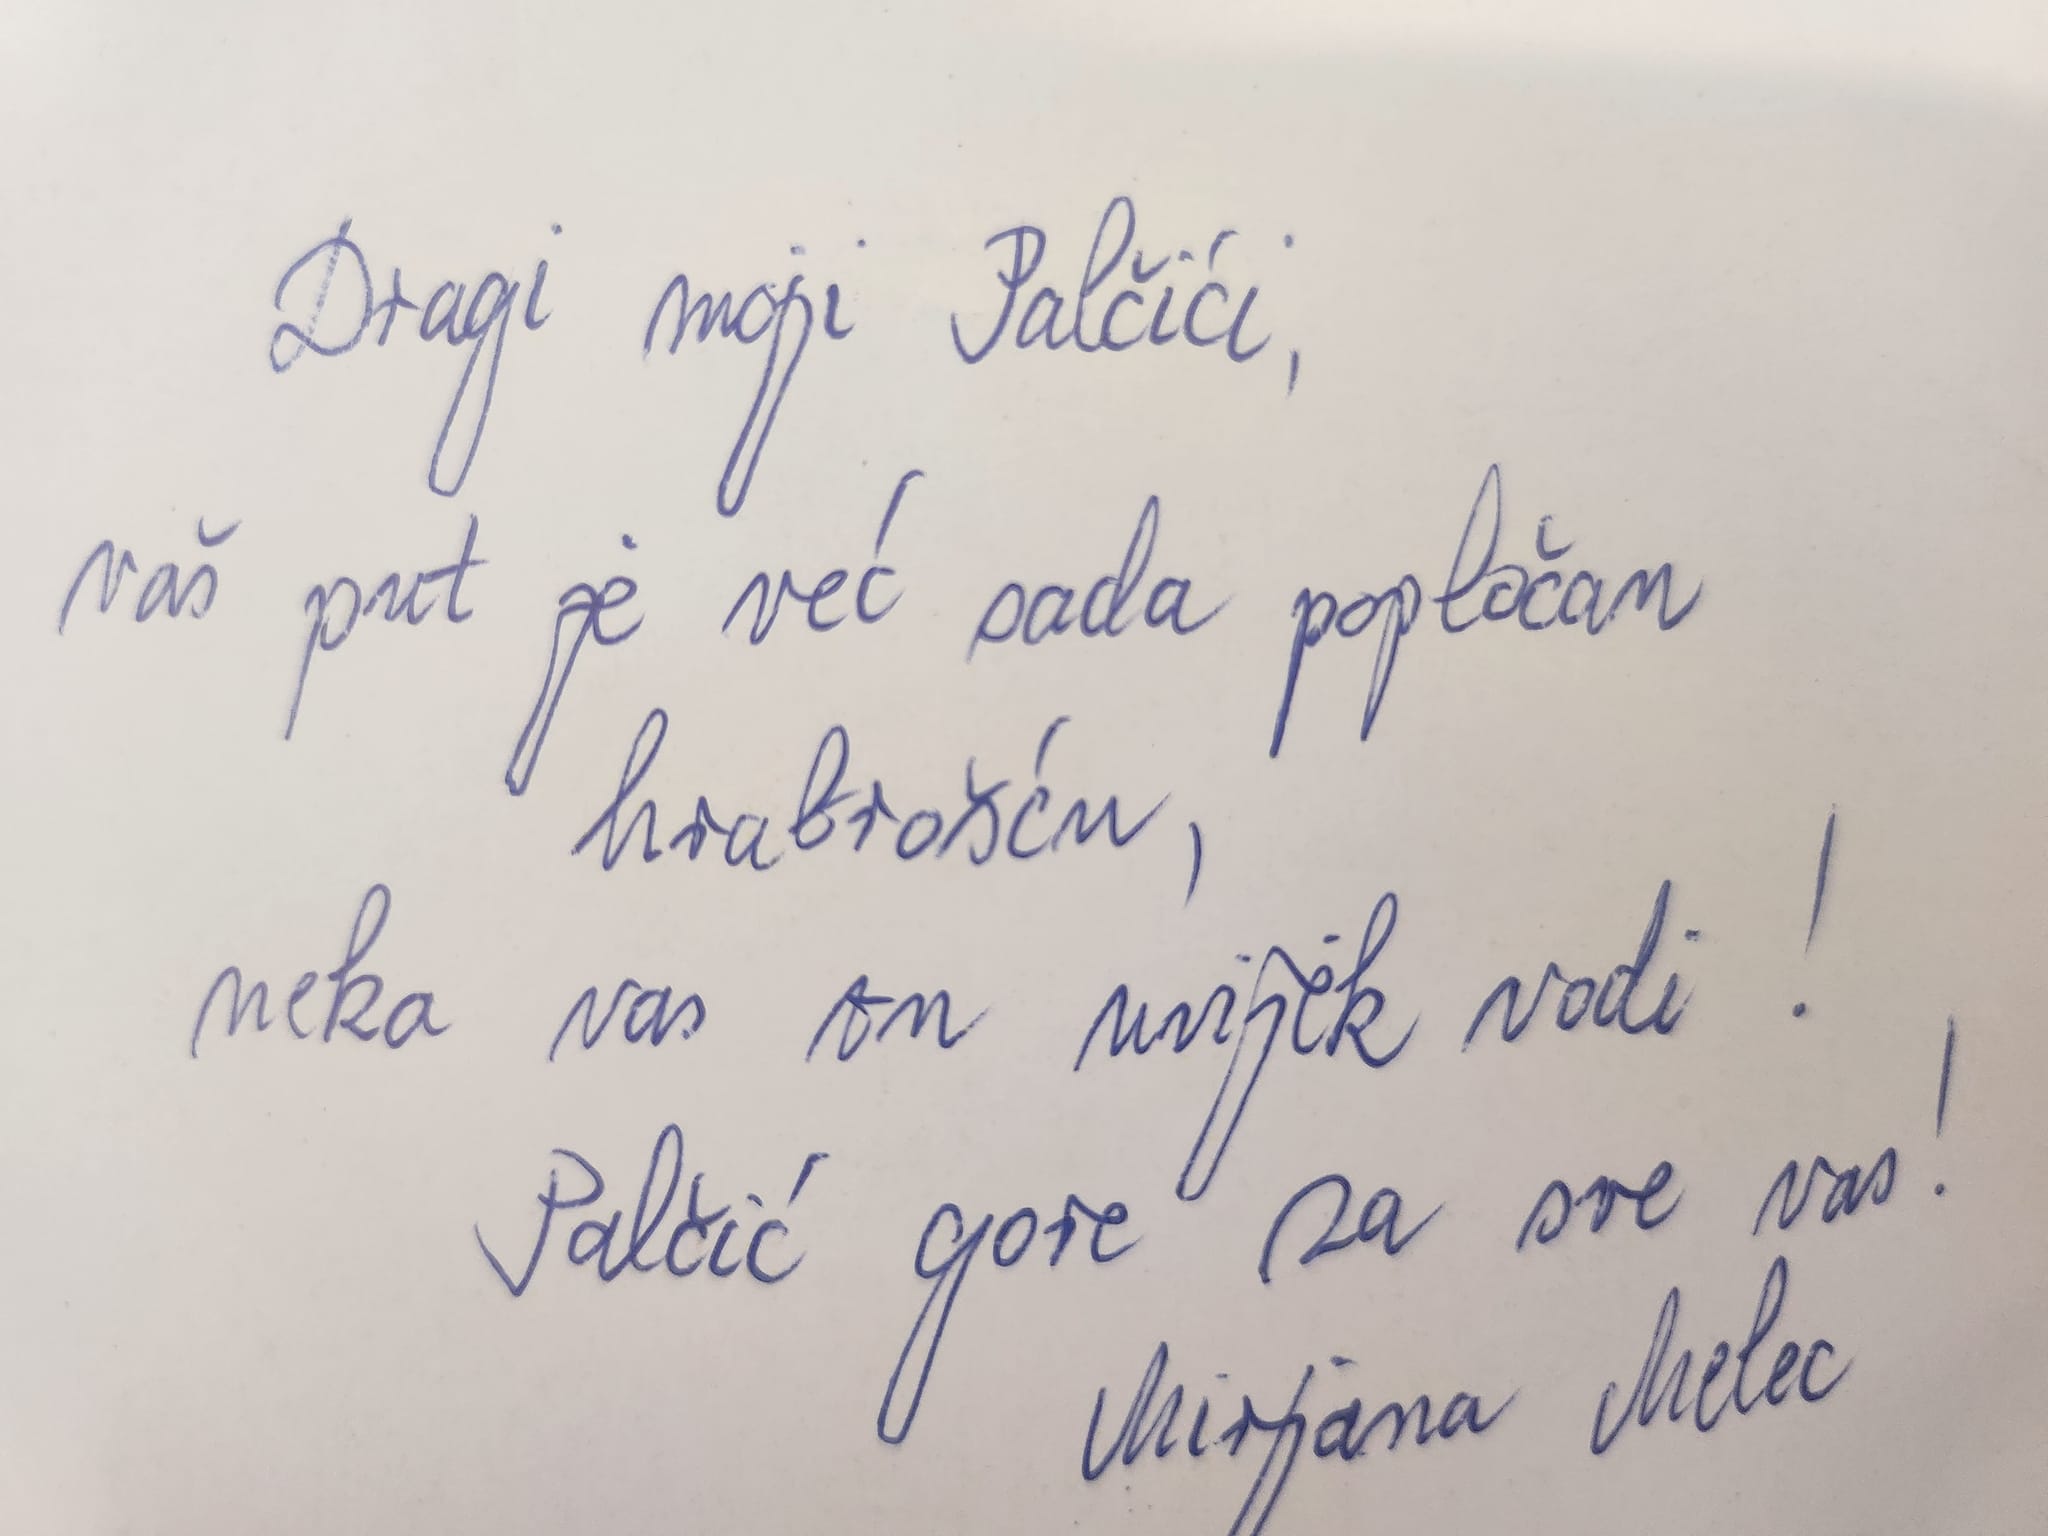 Dragi moji Palčići,
vaš put je već sada popločan
hrabrošću,
neka vas on uvijek vodi!
Palčić gore za sve vas!
Mirjana Melec